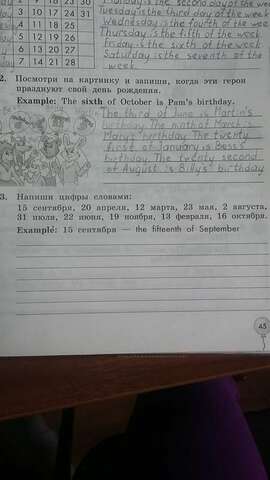 4 11 18 25
5 12 19 26
6 13 20 27
7 14 21 28
3 10 17 24 31
is the second day of the week
Tuesday is the third day of the week
Wednesday is the fourth of the week
Thursday is the fifth of the week
Friday is the sixth of the week
Saturday is the seventh of the
week
2. Посмотри на картинку и запиши, когда эти герои
празднуют свой день рождения.
Example: The sixth of October is Pam's birthday.
The third of June is Martin's
birthday. The ninth of March is
Mary's birthday. The twenty
first of January is Bess's
birthday. The twenty second
of August is Billy's birthday
3. Напиши цифры словами:
15 сентября, 20 апреля, 12 марта, 23 мая, 2 августа,
31 июля, 22 июня, 19 ноября, 13 февраля, 16 октября.
Example: 15 сентября — the fifteenth of September
45